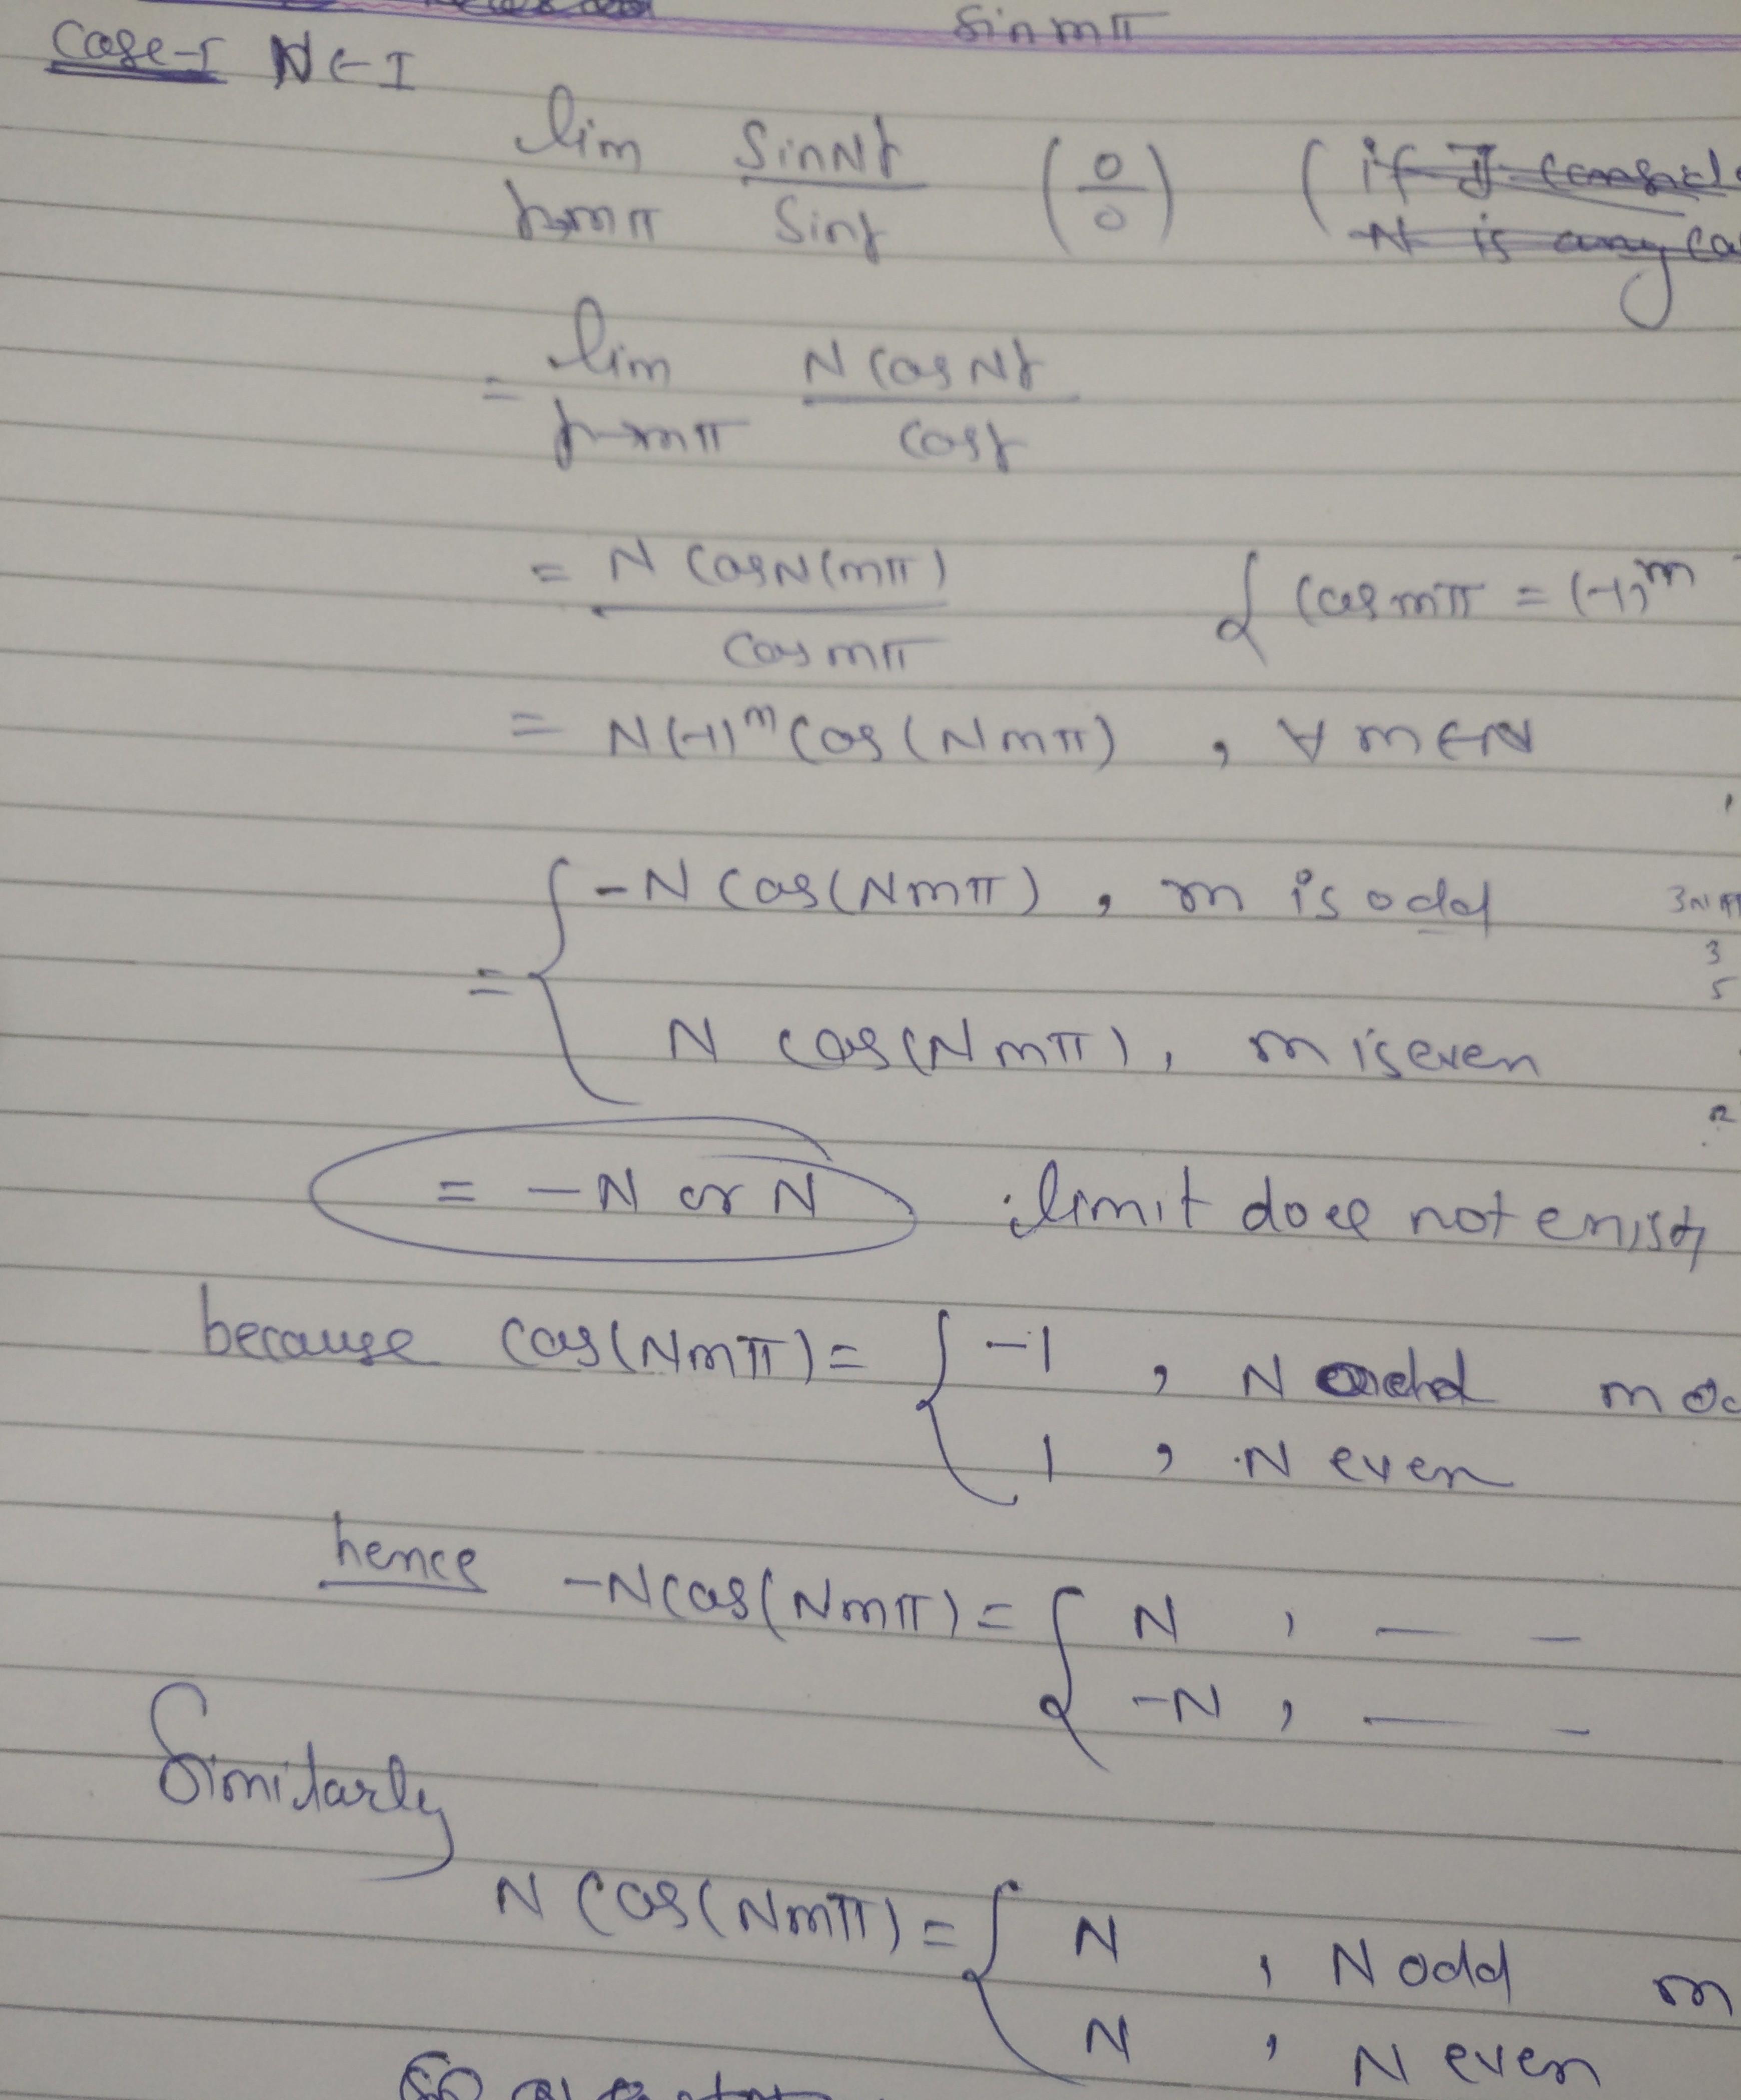 sin mπ
Case-I N∈I
lim t→mπ sinNt/sint (0/0) (if I consid
N is any
= lim t→mπ N cosNt/cost
= N cosN(mπ)/cos mπ { cos mπ = (-1)^m
= N(-1)^m cos(Nmπ) , ∀ m∈N
= { -N cos(Nmπ) , m is odd
N cos(Nmπ), m is even
= -N or N : limit does not exist
because cos(Nmπ) = { -1 , N odd m
1 , N even
hence -Ncos(Nmπ) = { N , — –
-N , — –
Similarly
N cos(Nmπ) = { N , N odd m
N , N even